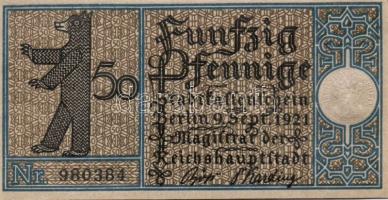 Fünfzig
50 Pfennige
Stadtkassenschein
Berlin 9. Sept. 1921
Magistrat der
Reichshauptstadt
Nr. 980384